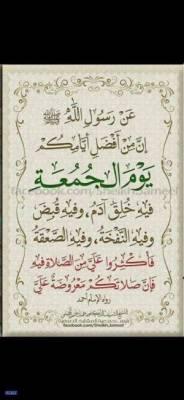 عَنْ رَسُولِ اللَّهِ ﷺ
إِنَّ مِنْ أَفْضَلِ أَيَّامِكُمْ
يَوْمَ الْجُمُعَةِ
فِيهِ خُلِقَ آدَمُ، وَفِيهِ قُبِضَ
وَفِيهِ النَّفْخَةُ، وَفِيهِ الصَّعْقَةُ
فَأَكْثِرُوا عَلَيَّ مِنَ الصَّلَاةِ فِيهِ
فَإِنَّ صَلَاتَكُمْ مَعْرُوضَةٌ عَلَيَّ
رواه الإمام أحمد
facebook.com/Sheikh.Jameel